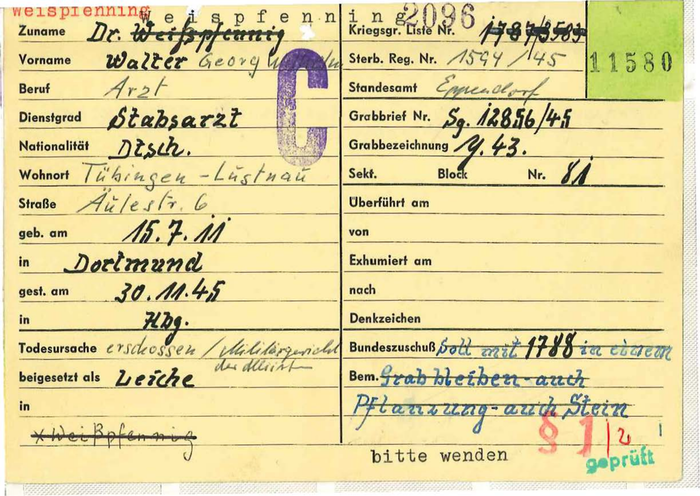 weispfenning
weispfenning 2096
Zuname Dr. Weißpfennig
Vorname Walter Georg
Beruf Arzt
Dienstgrad Stabsarzt
Nationalität Dtsch.
Wohnort Tübingen - Lustnau
Straße Äulestr. 6
geb. am 15.7.11
in Dortmund
gest. am 30.11.45
in Hbg.
Todesursache erschossen / Militärgericht
der Alliierten
beigesetzt als Leiche
in
x Weißpfennig
C
Kriegsgr. Liste Nr. 1787/3583
Sterb. Reg. Nr. 1594/45
Standesamt Eppendorf
11580
Grabbrief Nr. Sg. 12856/45
Grabbezeichnung Y. 43.
Sekt. Block Nr. 81
Überführt am
von
Exhumiert am
nach
Denkzeichen
Bundeszuschuß Soll mit 1788 in einem
Bem. Grab bleiben - auch
Pflanzung - auch Stein
§ 1 / 2
geprüft
bitte wenden